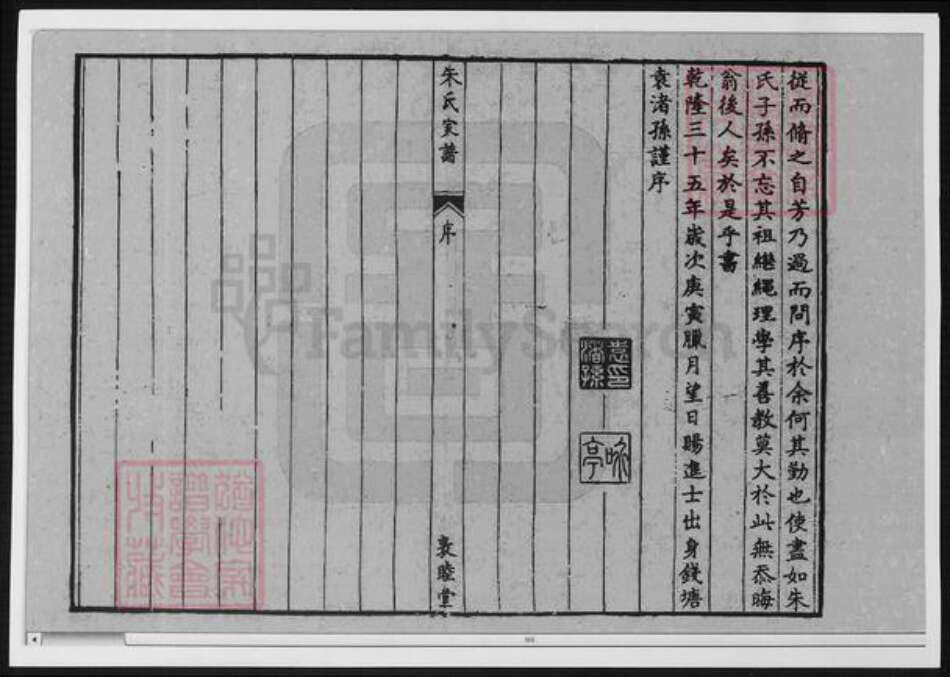 從而脩之自芳乃過而問序於余何其勤也使盡如朱
氏子孫不忘其祖繼繩理學其善教莫大於此無忝晦
翁後人矣於是乎書
乾隆三十五年歲次庚寅臘月望日賜進士出身錢塘
袁渚孫謹序
袁印渚孫
詠亭
朱氏家譜
序
敦睦堂
FamilySearch